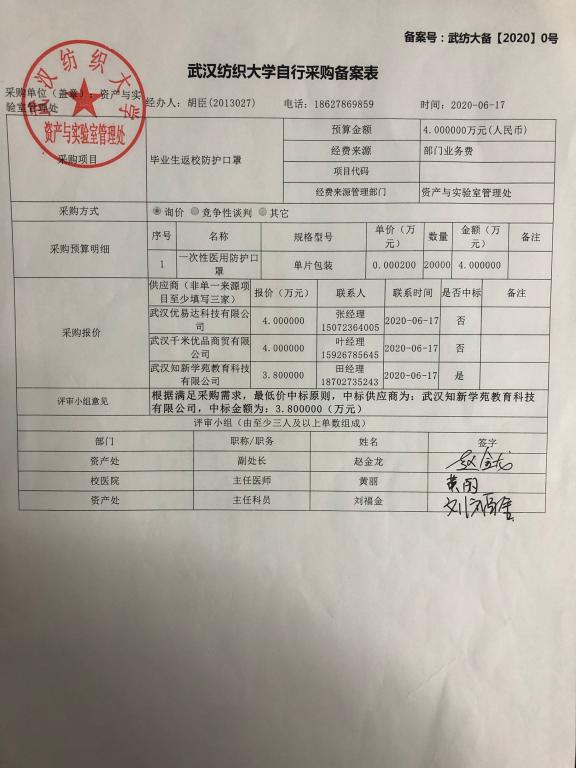 备案号：武纺大备【2020】0号
武汉纺织大学自行采购备案表
武汉纺织大学
资产与实验室管理处
采购单位（盖章）：资产与实
验室管理处
经办人：胡臣(2013027) 电话：18627869859 时间：2020-06-17
采购项目 毕业生返校防护口罩 预算金额 4.000000万元(人民币)
经费来源 部门业务费
项目代码
经费来源管理部门 资产与实验室管理处
采购方式 询价 竞争性谈判 其它
采购预算明细 序号 名称 规格型号 单价（万元） 数量 金额（万元） 备注
1 一次性医用防护口罩 单片包装 0.000200 20000 4.000000
采购报价 供应商（非单一来源项目至少填写三家） 报价（万元） 联系人 联系时间 是否中标 备注
武汉优易达科技有限公司 4.000000 张经理 15072364005 2020-06-17 否
武汉千米优品商贸有限公司 4.000000 叶经理 15926785645 2020-06-17 否
武汉知新学苑教育科技有限公司 3.800000 田经理 18702735243 2020-06-17 是
评审小组意见 根据满足采购需求，最低价中标原则，中标供应商为：武汉知新学苑教育科技
有限公司，中标金额为：3.800000（万元）
评审小组（由至少三人及以上单数组成）
部门 职称/职务 姓名 签字
资产处 副处长 赵金龙 赵金龙
校医院 主任医师 黄丽 黄丽
资产处 主任科员 刘福金 刘福金